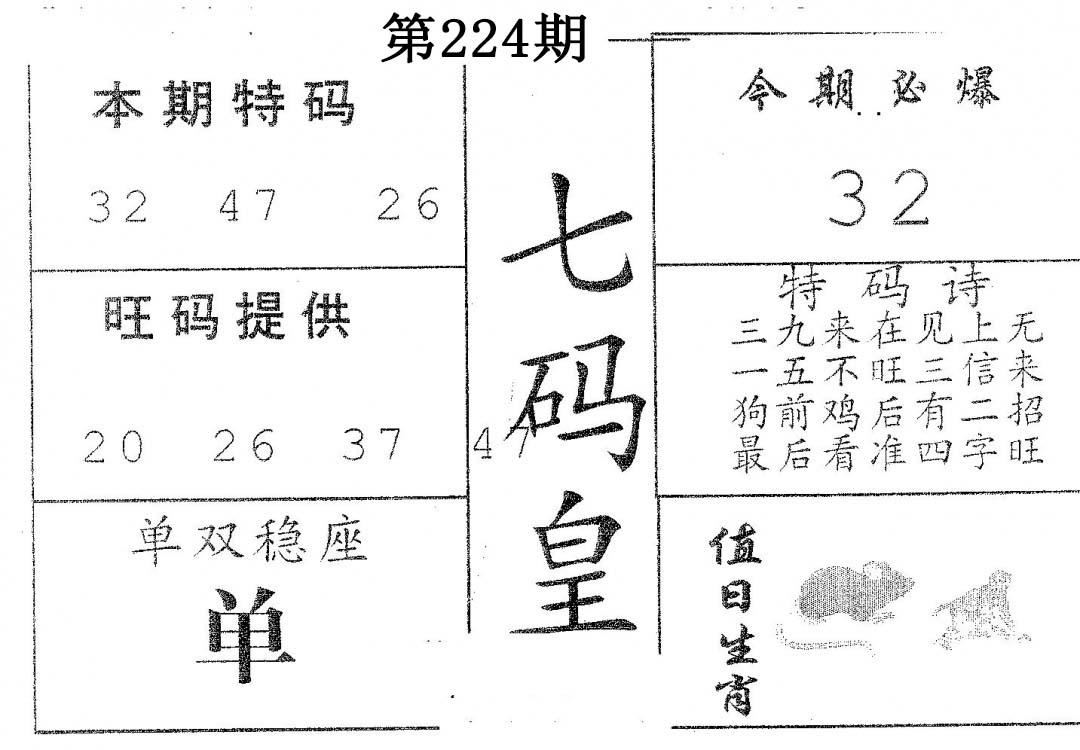 第224期
本期特码
32 47 26
旺码提供
20 26 37 47
单双稳座
单
七码皇
今期必爆
32
特码诗
三九来在见上无
一五不旺三信来
狗前鸡后有二招
最后看准四字旺
值日生肖